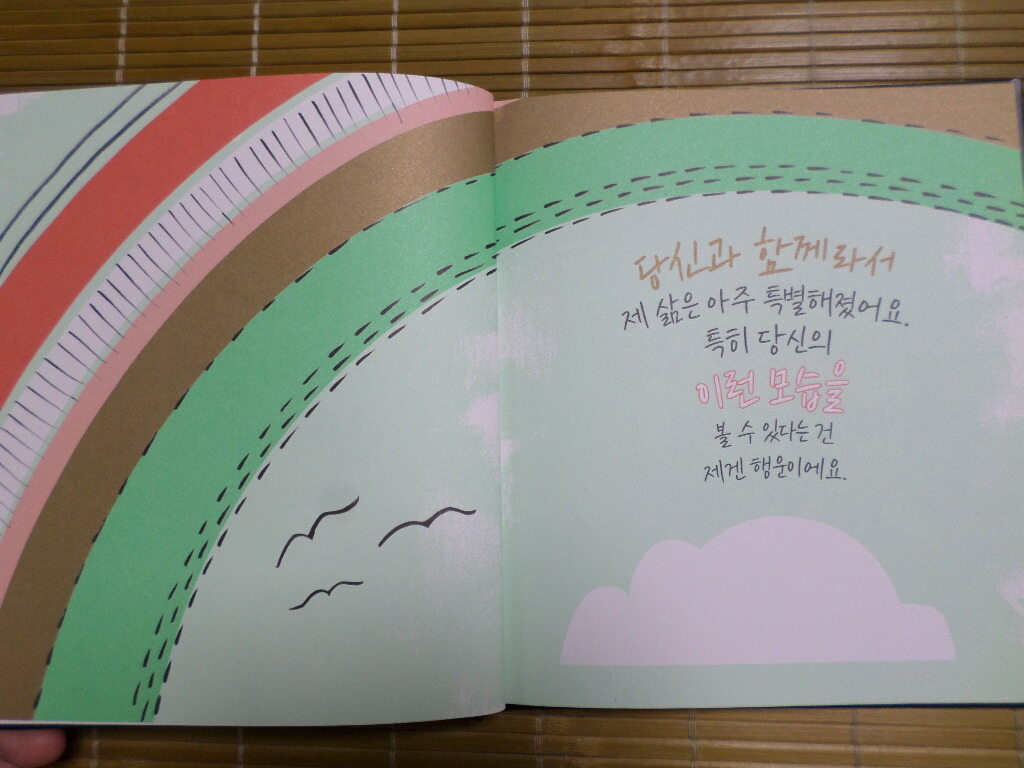 당신과 함께라서
제 삶은 아주 특별해졌어요.
특히 당신의
이런 모습을
볼 수 있다는 건
제겐 행운이에요.